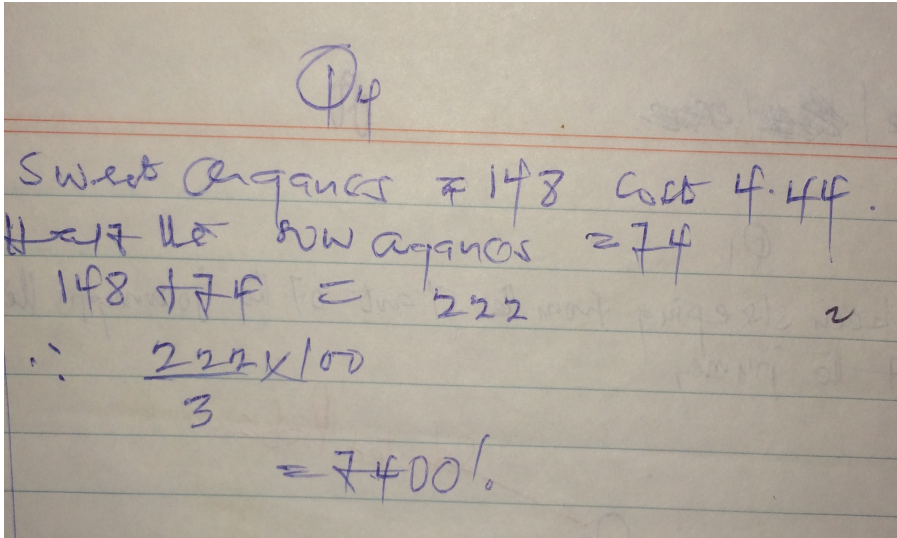 Q4
Sweet Organges = 148 Cost 4.44.
Half the row aganges = 74
148 + 74 = 222
∴ 222 x 100
3
= 7400%